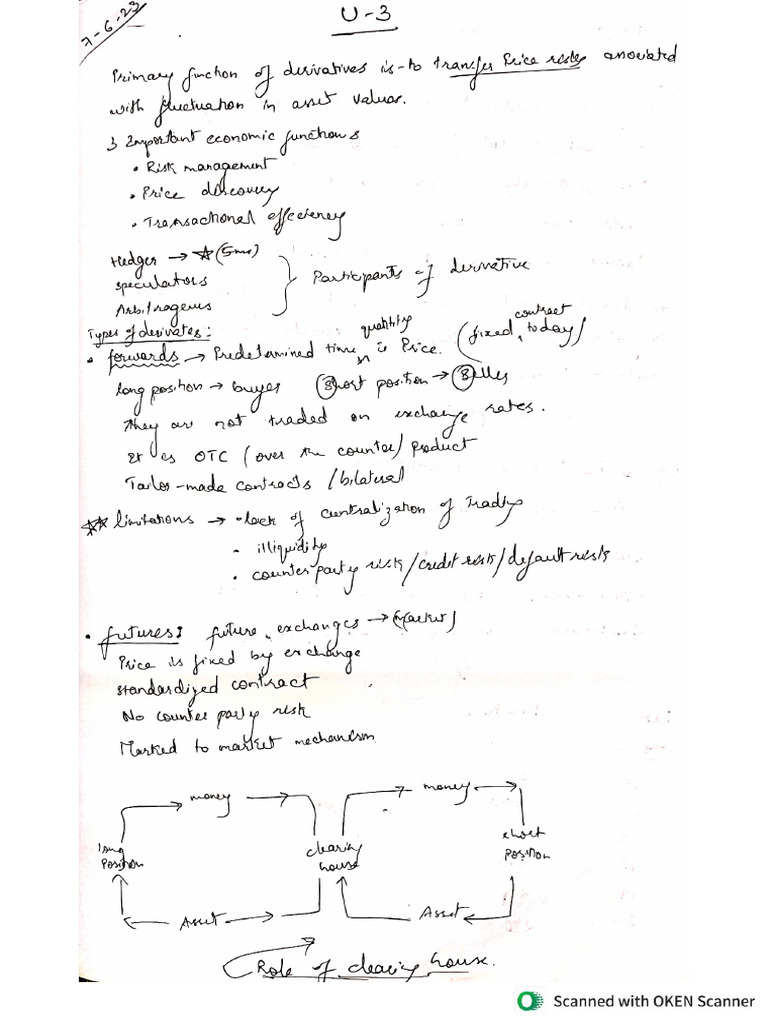 7-6-23
U-3
Primary function of derivatives is to transfer Price risks associated
with fluctuation in asset values.
3 Important economic functions
• Risk management
• Price discovery
• Transactional effeciency
Hedger → ☆ (5ms)
speculators
Arbitragerus
} Participants of derivative
Types of derivates:
• forwards → Predetermined time, quantity & Price. (fixed contract, today)
long position → buyer Short position → Seller
They are not traded on exchange rates.
It is OTC (over the counter) Product
Tailor-made contracts / bilateral
☆☆ limitations → • lack of centralization of Trading
• illiquidity
• counter party risk / credit risk / default risk
• futures: future exchanges → (Market)
Price is fixed by exchange
standardized contract
No counter party risk
Marked to market mechanism
money → money →
long Position clearing house short Position
Asset Asset
Role of clearing house.
Scanned with OKEN Scanner